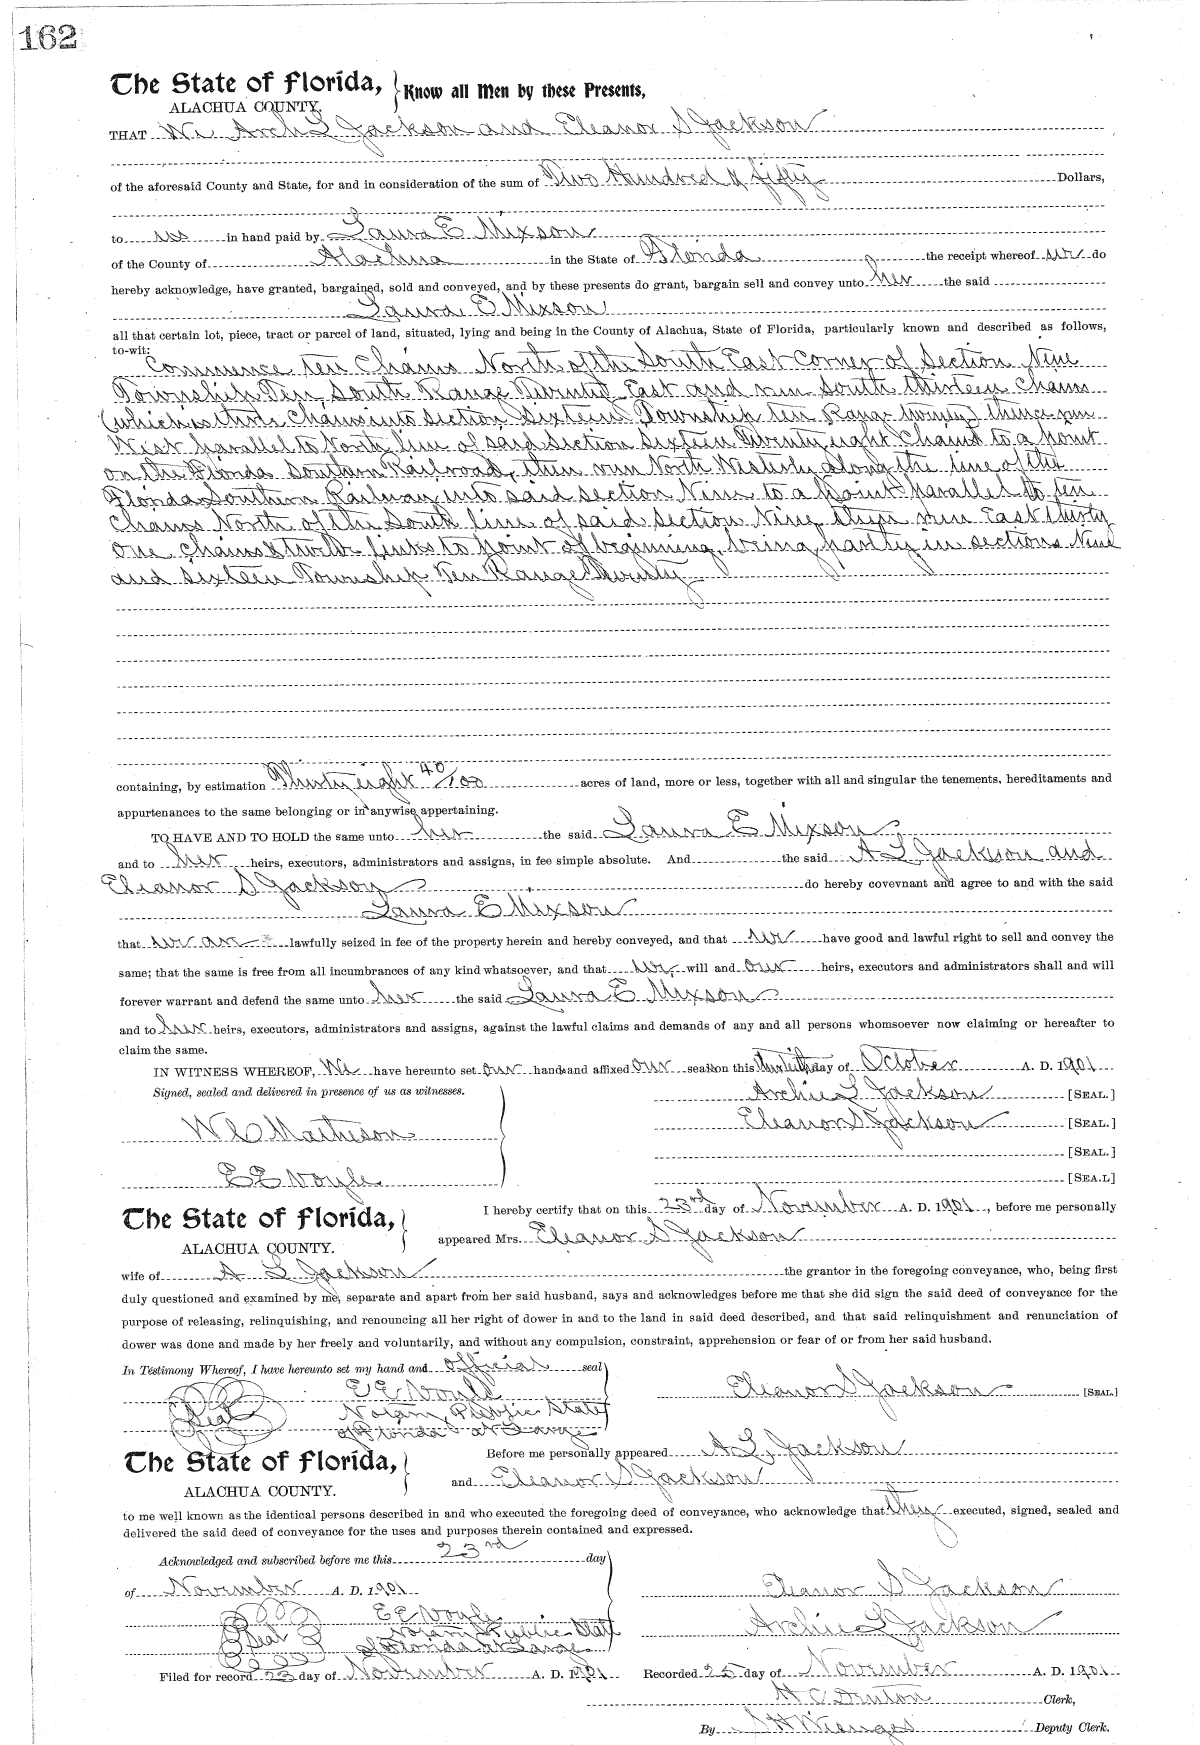 162
The State of Florida, Know all Men by these Presents,
ALACHUA COUNTY.
THAT We Arch L Jackson and Eleanor S Jackson
of the aforesaid County and State, for and in consideration of the sum of Two Hundred & fifty Dollars,
to us in hand paid by Laura E Mixson
of the County of Alachua in the State of Florida the receipt whereof we do
hereby acknowledge, have granted, bargained, sold and conveyed, and by these presents do grant, bargain sell and convey unto her the said
Laura E Mixson
all that certain lot, piece, tract or parcel of land, situated, lying and being in the County of Alachua, State of Florida, particularly known and described as follows,
to-wit:
Commence ten Chains North of the South East Corner of Section Nine
Township Ten, South Range Twenty East and run South thirteen Chains
(which is three Chains into section Sixteen Township ten Range twenty) thence run
West parallel to North line of said section sixteen Twenty eight Chains to a point
on the Florida Southern Railroad, then run North Westerly along the line of the
Florida Southern Railway into said section Nine to a point parallel to ten
Chains North of the South line of said section Nine, then run East thirty
one chains & twelve links to point of beginning, being partly in sections Nine
and sixteen Township Ten Range Twenty
containing, by estimation Thirty eight 40/100 acres of land, more or less, together with all and singular the tenements, hereditaments and
appurtenances to the same belonging or in anywise appertaining.
TO HAVE AND TO HOLD the same unto her the said Laura E Mixson
and to her heirs, executors, administrators and assigns, in fee simple absolute. And the said A L Jackson and
Eleanor S Jackson do hereby covevnant and agree to and with the said
Laura E Mixson
that we are lawfully seized in fee of the property herein and hereby conveyed, and that we have good and lawful right to sell and convey the
same; that the same is free from all incumbrances of any kind whatsoever, and that we will and our heirs, executors and administrators shall and will
forever warrant and defend the same unto her the said Laura E Mixson
and to her heirs, executors, administrators and assigns, against the lawful claims and demands of any and all persons whomsoever now claiming or hereafter to
claim the same.
IN WITNESS WHEREOF, We have hereunto set our hands and affixed our seals on this day of October A. D. 1901
Signed, sealed and delivered in presence of us as witnesses. Archie L Jackson [SEAL.]
W C Matheson Eleanor S Jackson [SEAL.]
[SEAL.]
E E Voyle [SEA.L]
The State of Florida, I hereby certify that on this 23rd day of November A. D. 1901, before me personally
ALACHUA COUNTY. appeared Mrs. Eleanor S Jackson
wife of A L Jackson the grantor in the foregoing conveyance, who, being first
duly questioned and examined by me, separate and apart from her said husband, says and acknowledges before me that she did sign the said deed of conveyance for the
purpose of releasing, relinquishing, and renouncing all her right of dower in and to the land in said deed described, and that said relinquishment and renunciation of
dower was done and made by her freely and voluntarily, and without any compulsion, constraint, apprehension or fear of or from her said husband.
In Testimony Whereof, I have hereunto set my hand and official seal
E E Voyle Eleanor S Jackson [SEAL.]
Seal Notary Public State
of Florida at Large
The State of Florida, Before me personally appeared A L Jackson
ALACHUA COUNTY. and Eleanor S Jackson
to me well known as the identical persons described in and who executed the foregoing deed of conveyance, who acknowledge that they executed, signed, sealed and
delivered the said deed of conveyance for the uses and purposes therein contained and expressed.
Acknowledged and subscribed before me this 23rd day
of November A. D. 1901 Eleanor S Jackson
E E Voyle Archie L Jackson
Seal Notary Public State
of Florida at Large
Filed for record 23 day of November A. D. 1901 Recorded 25 day of November A. D. 1901
H C Denton Clerk,
By S H Wienges Deputy Clerk.